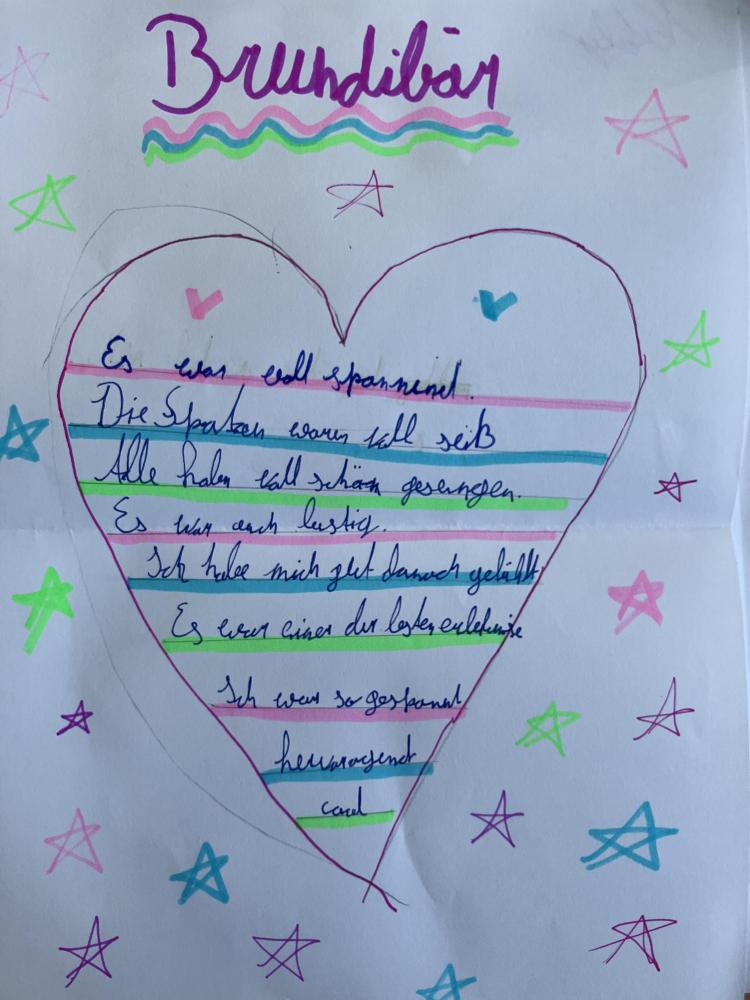 Brundibár
Es war voll spannend.
Die Spatzen waren voll seiß
Alle haben voll schön gesungen.
Es war auch lustig.
Ich habe mich gut danach gefühlt
Es war einer der besten erlebnise
Ich war so gespannt
hervoragend
cool